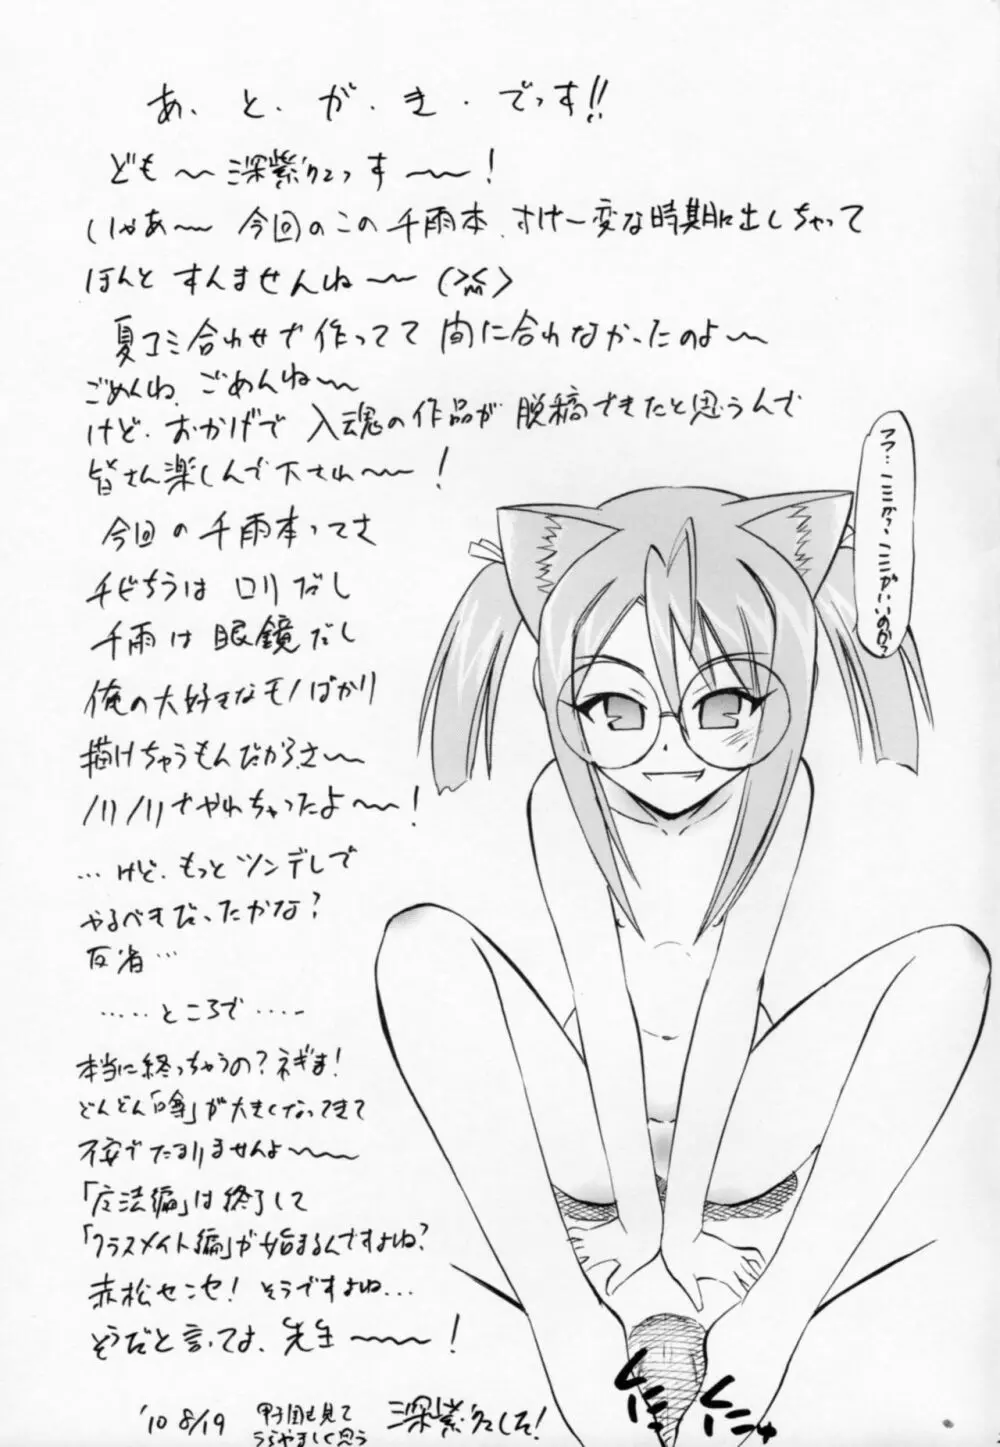 あ、と・が・き・でっす!!
ども〜〜深紫でっす〜〜!
いやあ〜〜今回のこの千雨本、すげー変な時期に出しちゃって
ほんとすんませんね〜〜(>_<)
夏コミ合わせで作ってて間に合わなかったのよ〜〜
ごめんね、ごめんね〜〜
けど、おかげで入魂の作品が脱稿できたと思うんで
皆さん楽しんで下され〜〜!
今回の千雨本ってさ
チビちうはロリだし
千雨は眼鏡だし
俺の大好きなモノばかり
描けちゃうもんだからさ〜〜
ノリノリでやれちゃったよ〜〜!
…けど、もっとツンデレで
やるべきだったかな?
反省…
……ところで……
本当に終っちゃうの?ネギま!
どんどん「噂」が大きくなってきて
不安でたまりませんよ〜〜
「魔法編」は終了して
「クラスメイト編」が始まるんですよね?
赤松センセ!そうですよね…
そうだと言ってよ、先生〜〜!
'10 8/19
甲子園を見て
うらやましく思う
深紫でした!
フフ…
ここかっ
ここがいいのか?